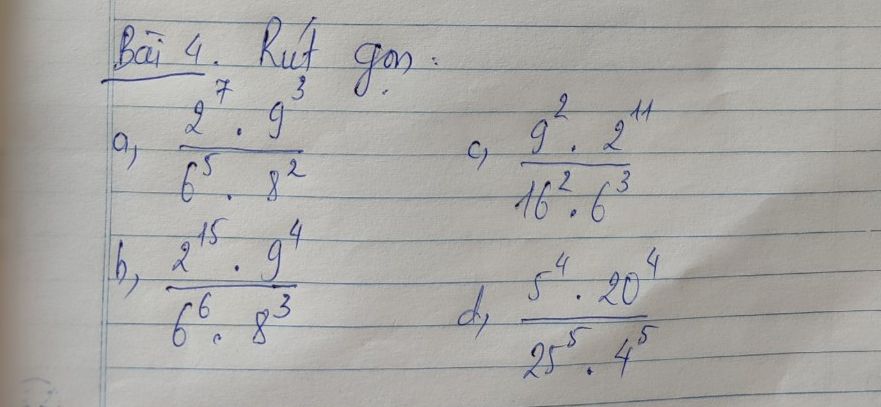 Bài 4. Rút gọn:
a, \frac{2^7 . 9^3}{6^5 . 8^2}
c, \frac{9^2 . 2^{11}}{16^2 . 6^3}
b, \frac{2^{15} . 9^4}{6^6 . 8^3}
d, \frac{5^4 . 20^4}{25^5 . 4^5}